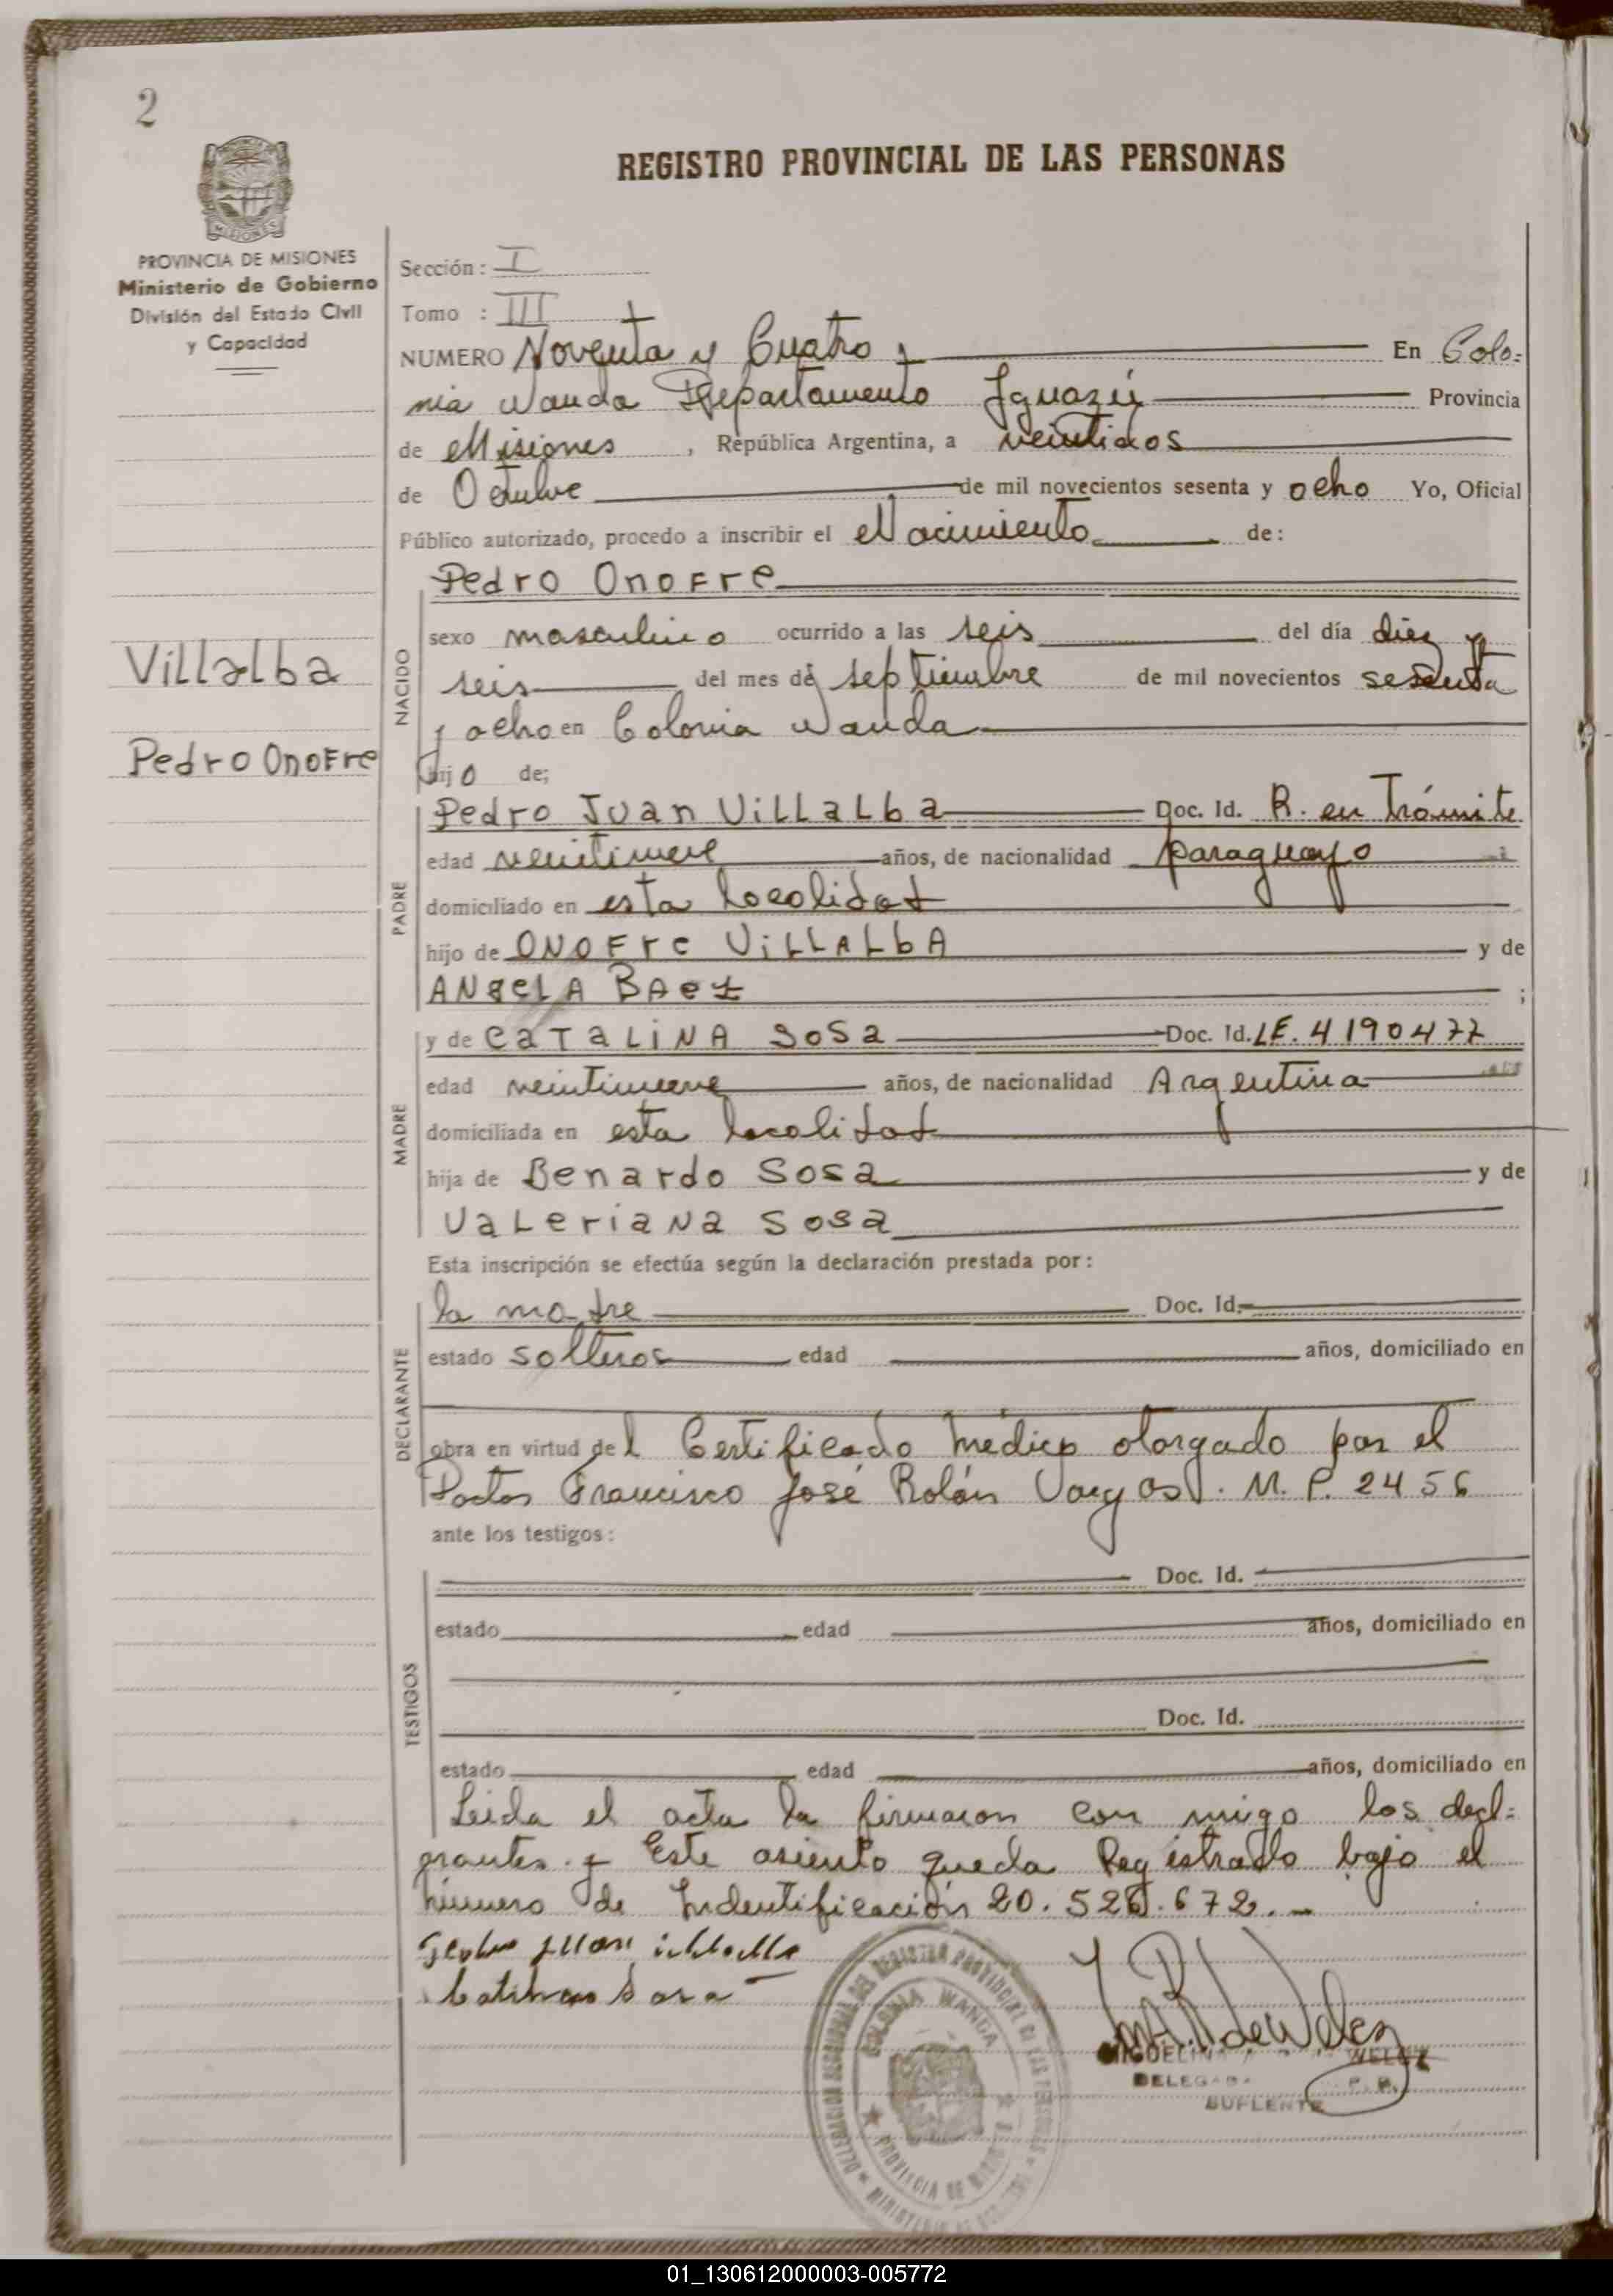 2
REGISTRO PROVINCIAL DE LAS PERSONAS
MISIONES
PROVINCIA DE MISIONES
Ministerio de Gobierno
División del Estado Civil
y Capacidad
Sección: I
Tomo : III
NUMERO Noventa y Cuatro En Colo=
nia Wanda Departamento Iguazú Provincia
de Misiones, República Argentina, a veintidos
de Octubre de mil novecientos sesenta y ocho Yo, Oficial
Público autorizado, procedo a inscribir el Nacimiento de:
Pedro Onofre
NACIDO
sexo masculino ocurrido a las seis del día diez y
seis del mes de septiembre de mil novecientos sesenta
y ocho en Colonia Wanda
Villalba
Pedro Onofre
hijo de;
PADRE
Pedro Juan Villalba Doc. Id. R. en Trámite
edad veintinueve años, de nacionalidad paraguayo
domiciliado en esta localidad
hijo de Onofre Villalba y de
Angela Baez ;
MADRE
y de Catalina Sosa Doc. Id. LE. 4190477
edad veintinueve años, de nacionalidad Argentina
domiciliada en esta localidad
hija de Benardo Sosa y de
Valeriana Sosa
Esta inscripción se efectúa según la declaración prestada por:
DECLARANTE
la madre Doc. Id.
estado solteros edad años, domiciliado en
obra en virtud del Certificado Médico otorgado por el
Doctor Francisco José Rolón Vargas. M. P. 2456
ante los testigos:
TESTIGOS
Doc. Id.
estado edad años, domiciliado en
Doc. Id.
estado edad años, domiciliado en
Leida el acta la firmaron con migo los decl=
rantes. Este asiento queda Registrado bajo el
número de Indentificación 20.526.672.-
Catalina Sosa
COLONIA WANDA
DELEGADA
SUPLENTE
01_130612000003-005772